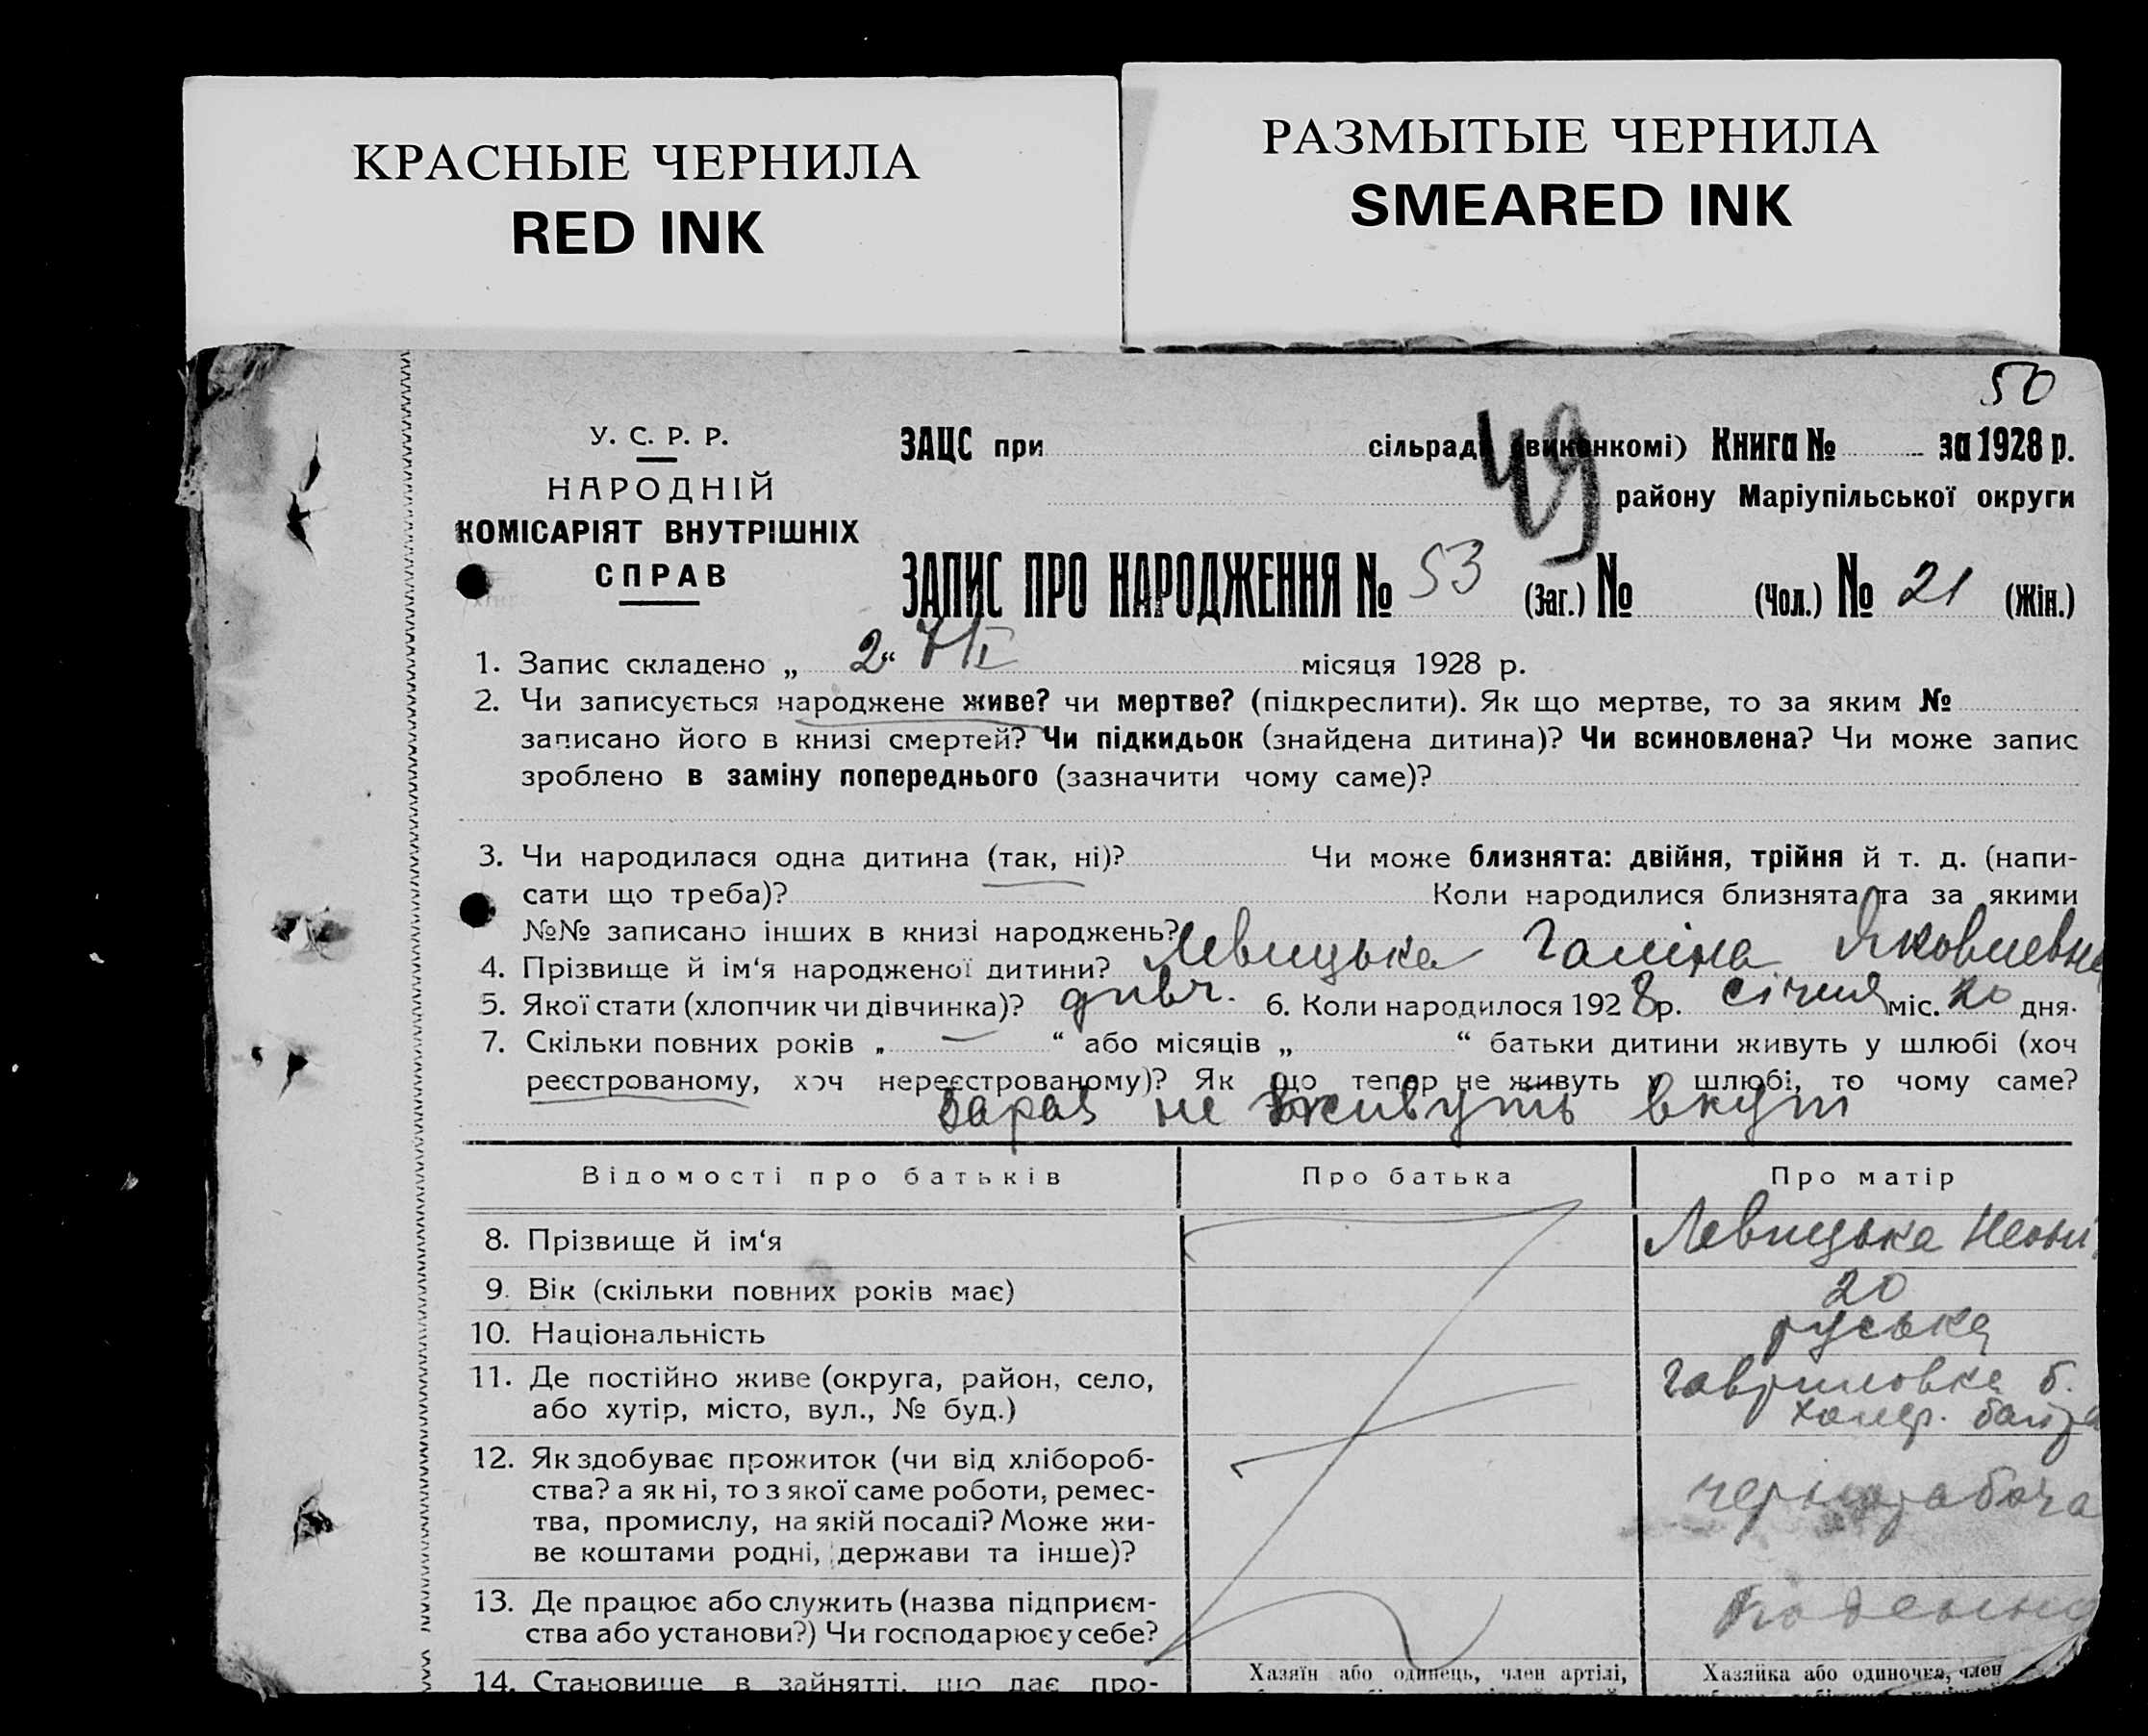 КРАСНЫЕ ЧЕРНИЛА
RED INK
РАЗМЫТЫЕ ЧЕРНИЛА
SMEARED INK
50
49
У. С. Р. Р.
НАРОДНІЙ
КОМІСАРІЯТ ВНУТРІШНІХ
СПРАВ
ЗАЦС при сільраді (виконкомі) Книга № за 1928 р.
району Маріупільської округи
ЗАПИС ПРО НАРОДЖЕННЯ № 53 (Заг.) № (Чол.) № 21 (Жін.)
1. Запис складено „ 2 “ місяця 1928 р.
2. Чи записується народжене живе? чи мертве? (підкреслити). Як що мертве, то за яким №
записано його в книзі смертей? Чи підкидьок (знайдена дитина)? Чи всиновлена? Чи може запис
зроблено в заміну попереднього (зазначити чому саме)?
3. Чи народилася одна дитина (так, ні)? Чи може близнята: двійня, трійня й т. д. (напи-
сати що треба)? Коли народилися близнята та за якими
№№ записано інших в книзі народжень?
4. Прізвище й ім‘я народженої дитини? Левицька Галіна Яковлевна
5. Якої стати (хлопчик чи дівчинка)? дивч. 6. Коли народилося 1928 р. січня міс. 20 дня.
7. Скільки повних років „ — “ або місяців „ “ батьки дитини живуть у шлюбі (хоч
реєстрованому, хоч нереєстрованому)? Як що тепер не живуть у шлюбі, то чому саме?
Зараз не живуть вкупі
Відомості про батьків Про батька Про матір
8. Прізвище й ім‘я Левицька
9. Вік (скільки повних років має) 20
10. Національність руська
11. Де постійно живе (округа, район, село, Гавриловка б.
або хутір, місто, вул., № буд.)
12. Як здобуває прожиток (чи від хлібороб-
ства? а як ні, то з якої саме роботи, ремес- чернорабоча
тва, промислу, на якій посаді? Може жи-
ве коштами родні, держави та інше)?
13. Де працює або служить (назва підприєм-
ства або установи?) Чи господарює у себе?
14. Становище в зайнятті, що дає про- Хазяїн або одинець, член артілі, Хазяйка або одиночка, член